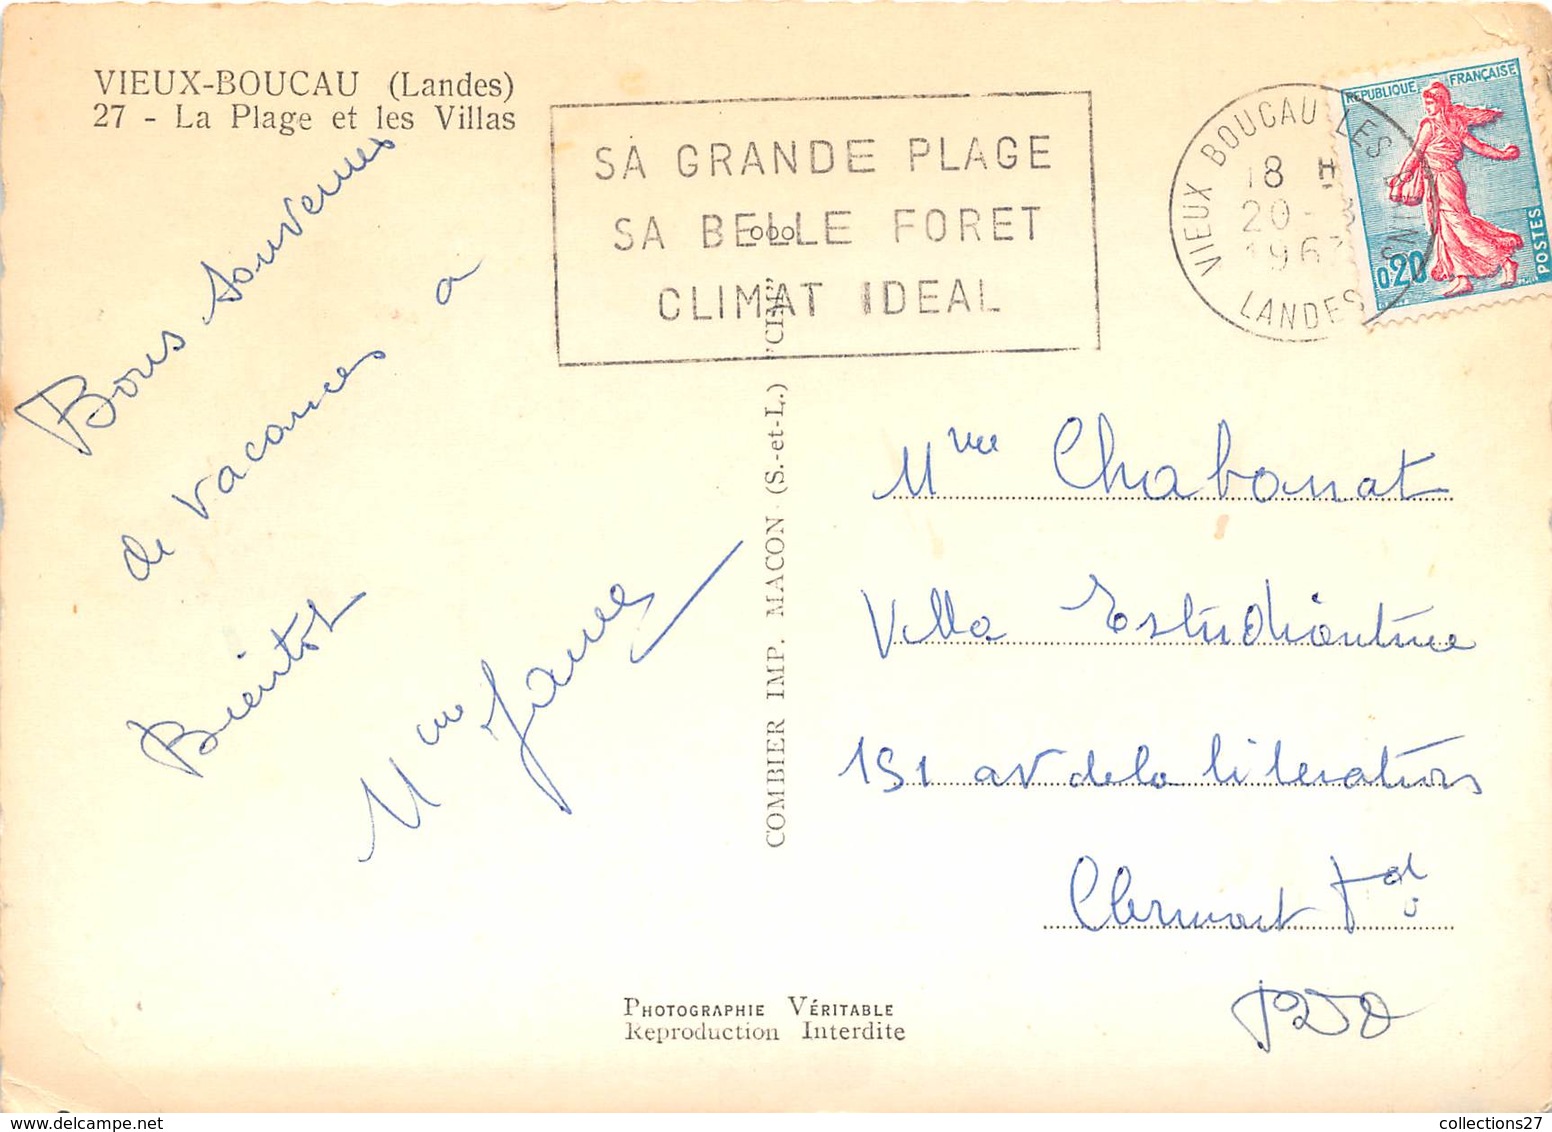 VIEUX-BOUCAU (Landes)
27 - La Plage et les Villas
SA GRANDE PLAGE
SA BELLE FORET
CLIMAT IDEAL
VIEUX BOUCAU LES BAINS
18 H
20-
1963
LANDES
REPUBLIQUE FRANÇAISE
0,20
POSTES
Bons Souvenirs
de vacances a
Bientot
Mme
COMBIER IMP. MACON (S.-et-L.) "CIM"
Mme Chabanat
Villa Estudiantine
151 av de la liberation
Clermont Fd
PDD
PHOTOGRAPHIE VÉRITABLE
Reproduction Interdite
collections27